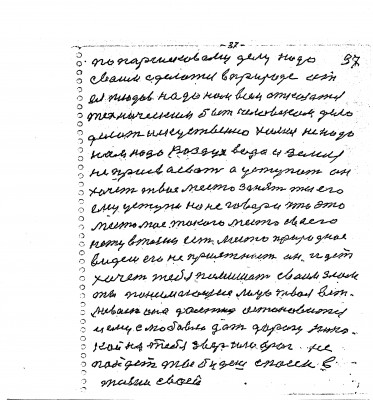 - 37 -
по паршиковому делу надо 37
своим сделать в природе от
ея плодов надо нам всем отказатся
техническим быт человеком дело
делат искуственно халки не надо
нам надо воздух вода и земля
не присваеват а уступат он
хочет твое место занят ты его
ему уступи но не говари что это
место мое такого место своего
нету в тебя ест место природное
видем его не приятност он идет
хочет тебя помешат своим злом
ты понимающие лицо твоя
она должна остановится
и ему с любовю дат дорогу нико-
кой на тебя звер или враг не
пойдет ты будеш спасен в
жизни своей